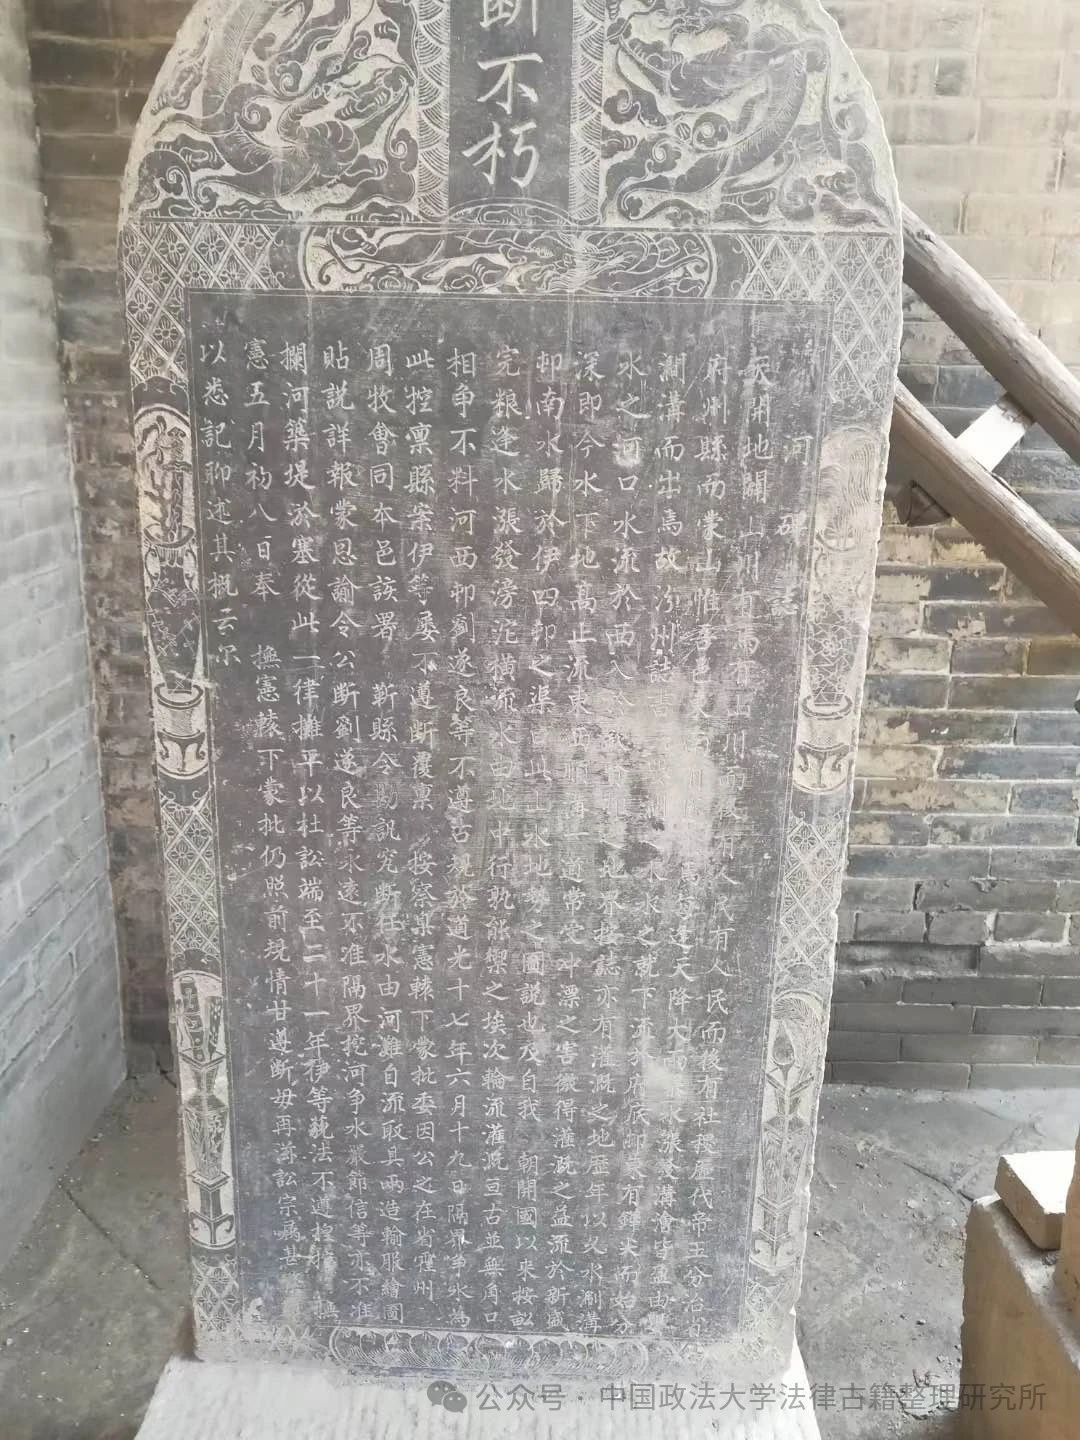 斷不朽
河碑誌
天開地闢山川有焉有山川而後有人民有人民而後有社稷歷代帝王分治
府州縣而蒙山惟吾邑 焉每逢天降大雨 水漲發溝澮皆盈由
澗溝而出焉故汾州誌 水之就下流於府底 有鐸尖而始分
水之河口水流於西入 之地界接誌亦有灌溉之地歷年以久水澗溝
深即今水下地高止流東 一道常受沖漂之害微得灌溉之益流於新盛
邨南水歸於伊四邨之渠 水地勢之圖說也及自我 朝開國以來按畝
完粮逢水漲發滂沱橫流水由地中行孰能禦之埃次輪流灌溉亘古並無角口
相爭不料河西邨劉遂良等不遵古規於道光十七年六月十九日隔界爭水為
此控稟縣案伊等屡不遵断覆稟 按察臬憲轅下蒙批委因公之在省霍州
周牧會同本邑該署 靳縣令勘訊究断任水由河灘自流取具兩造輸服繪圖
貼説詳報蒙恩諭令公断劉遂良等永遠不准隔界挖河爭水嚴節信等亦不准
攔河築堤於塞從此一律推平以杜訟端至二十一年伊等藐法不遵控 撫
憲五月初八日奉 撫憲轅下蒙批仍照前規情甘遵断毋再滋訟宗属甚
以悉記聊述其概云尔
公众号·中国政法大学法律古籍整理研究所